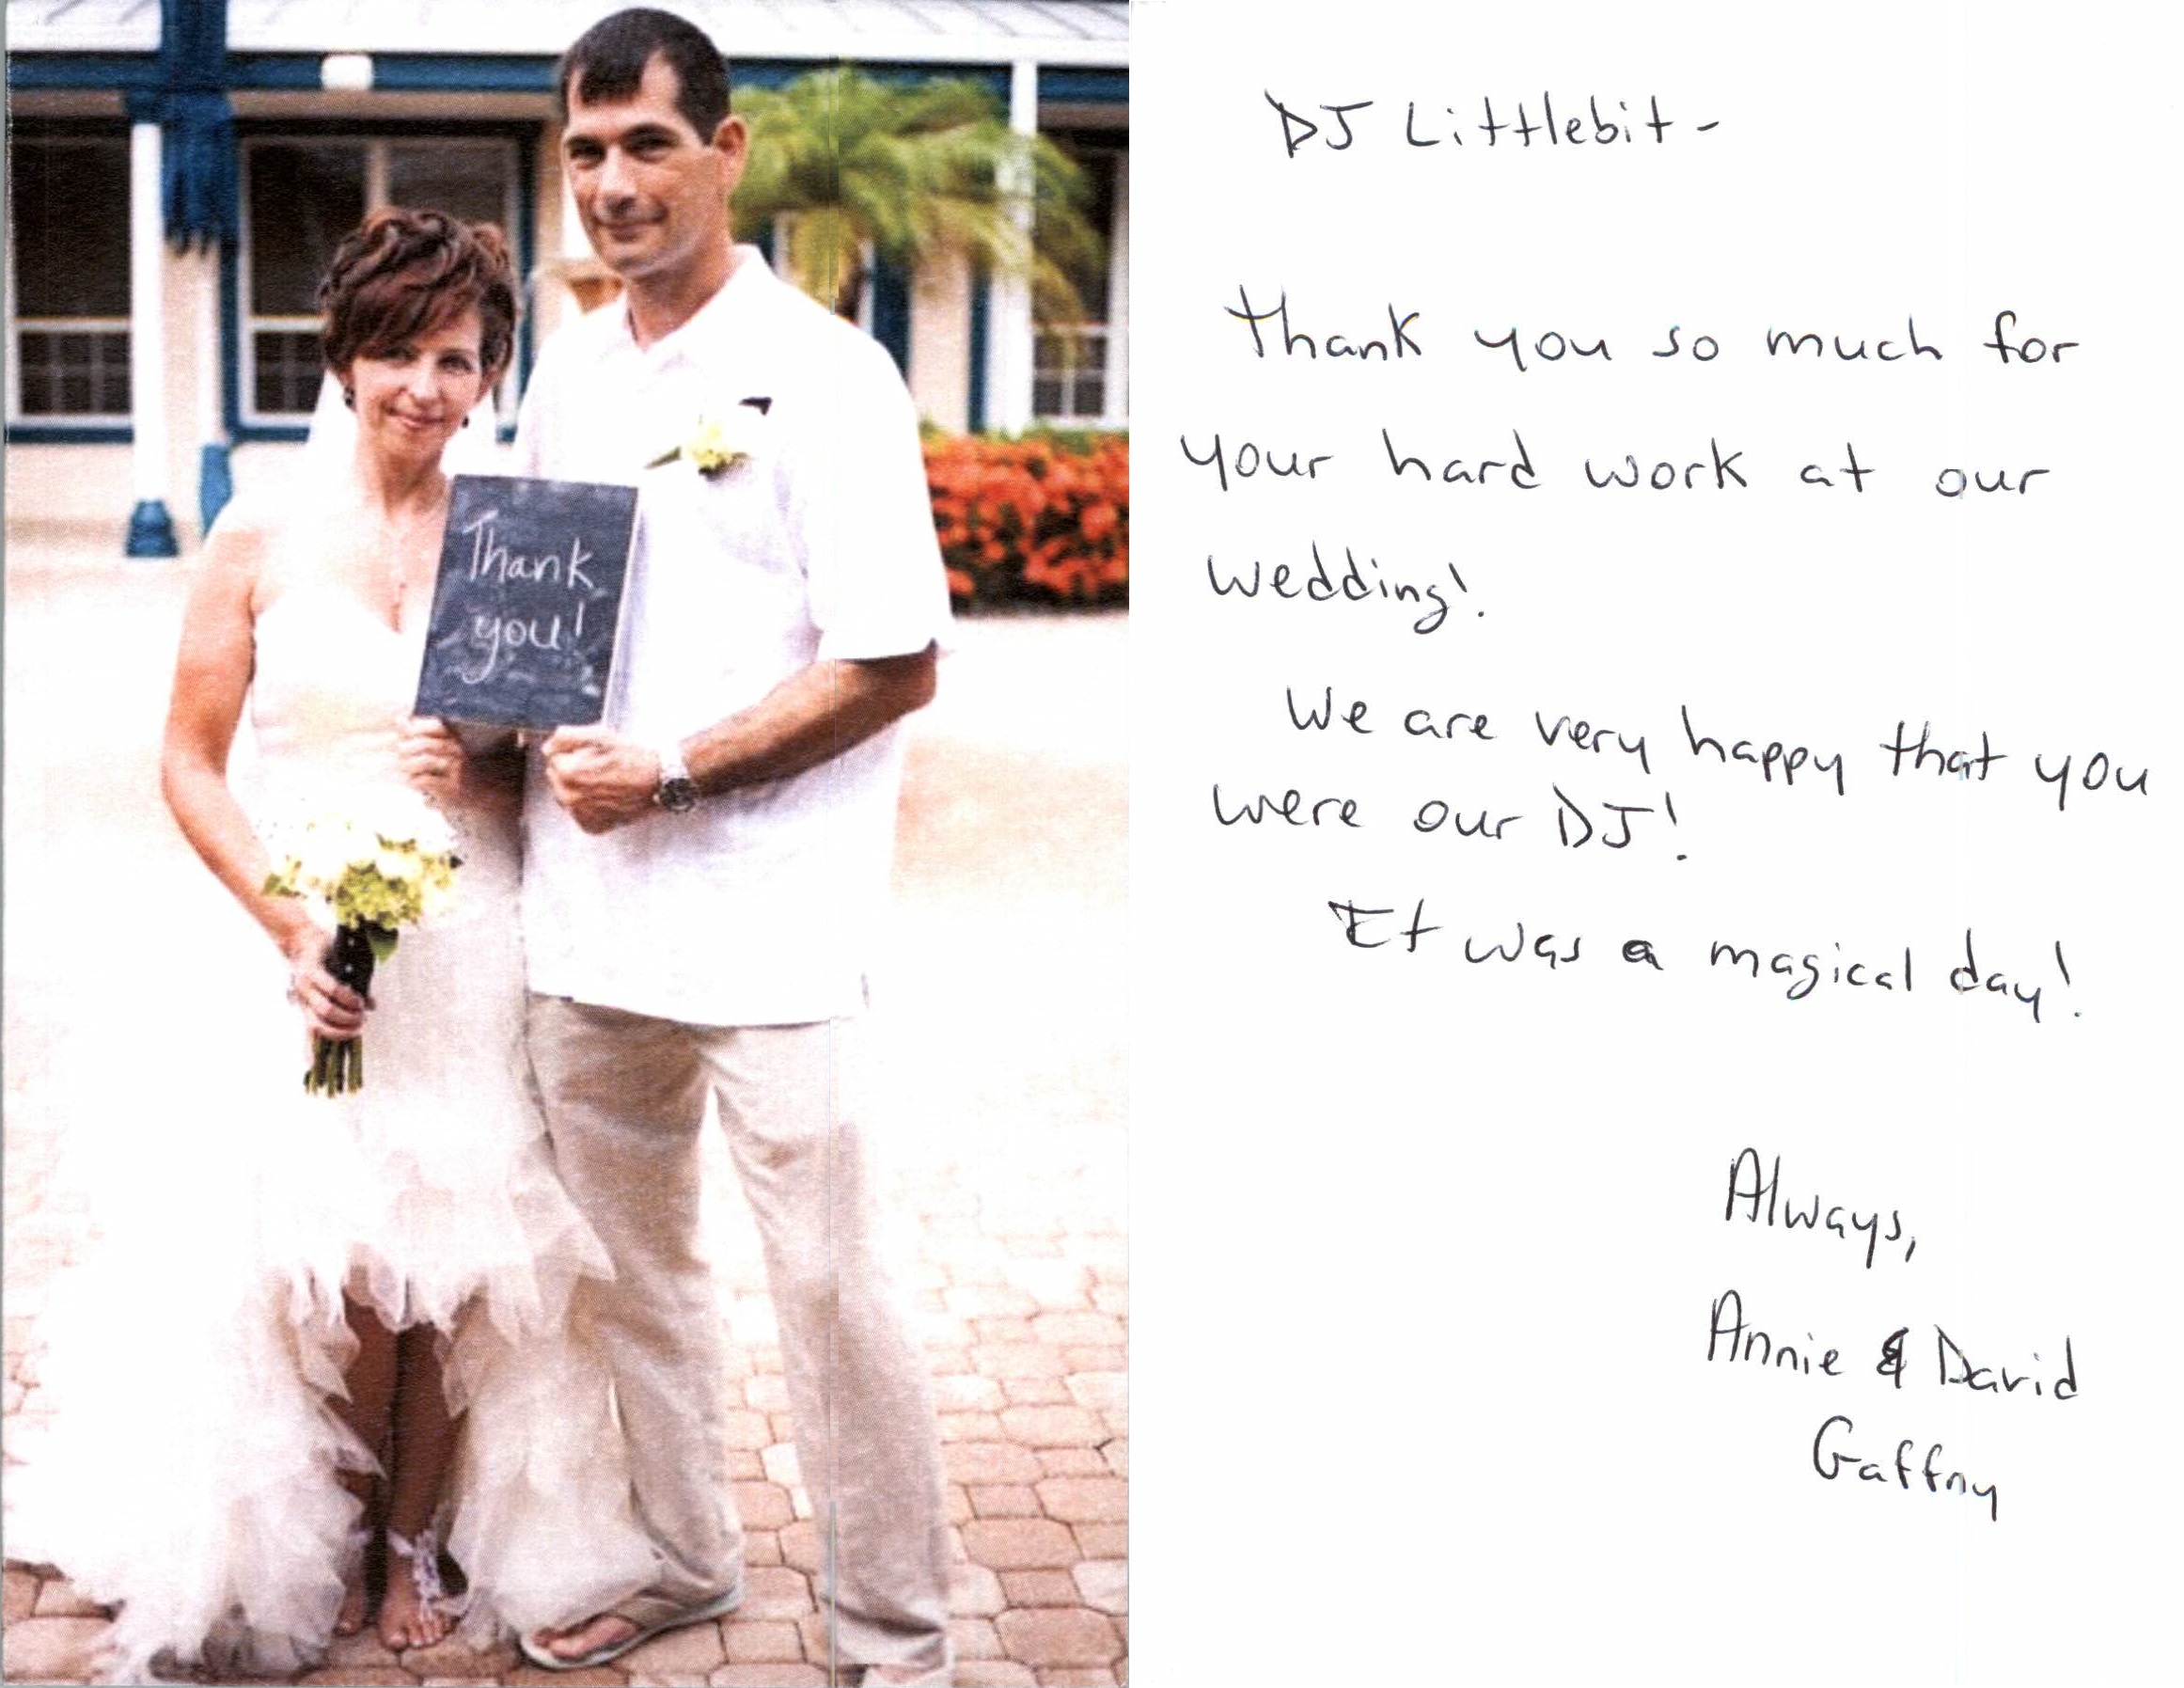 Thank
you!
DJ Littlebit -
Thank you so much for
your hard work at our
wedding!
We are very happy that you
were our DJ!
It was a magical day!
Always,
Annie & David
Gaffny